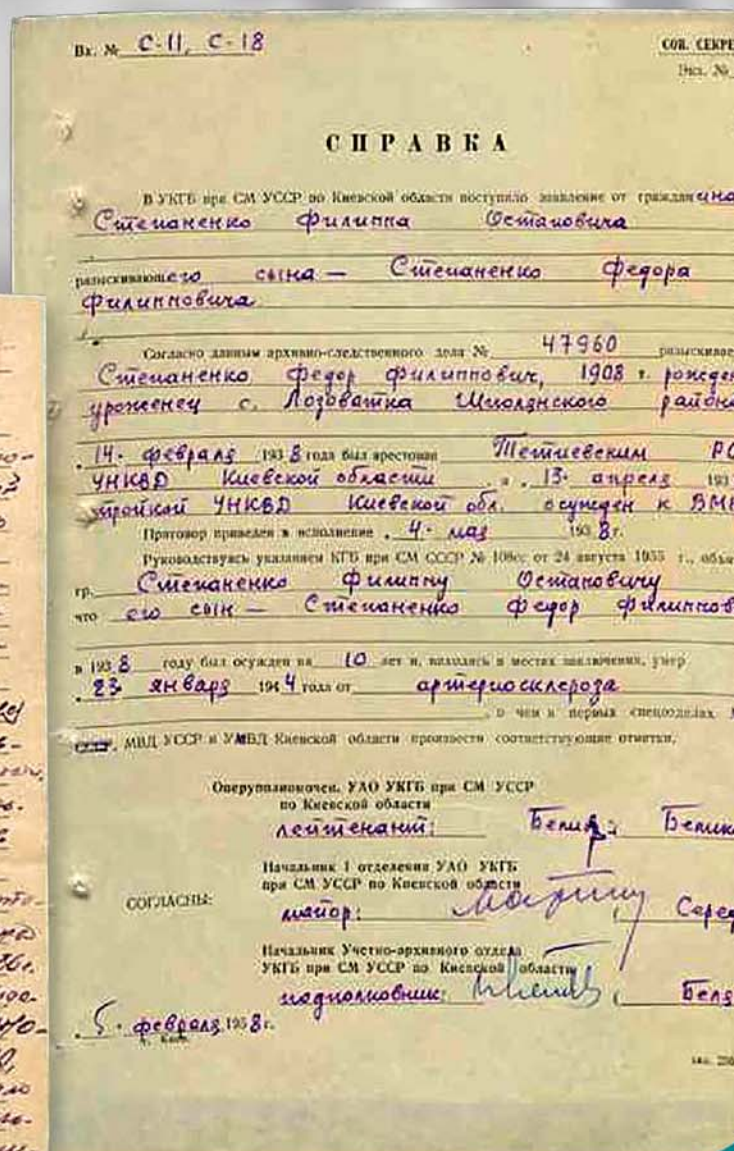 Вх. № С-11, С-18
СОВ. СЕКРЕ
Экз. №
СПРАВКА
В УКГБ при СМ УССР по Киевской области поступило заявление от гражданина
Степаненко Филиппа Остаповича
разыскивающего сына — Степаненко Федора
Филипповича
Согласно данным архивно-следственного дела № 47960 разыскивае
Степаненко Федор Филиппович, 1908 г. рожден
уроженец с. Лозоватка Шполянского района
„14“ февраля 1938 года был арестован Тетиевским РО
УНКВД Киевской области, а „13“ апреля 193
тройкой УНКВД Киевской обл. осужден к ВМН
Приговор приведен в исполнение „4“ мая 1938 г.
Руководствуясь указанием КГБ при СМ СССР № 108сс от 24 августа 1955 г., объя
гр. Степаненко Филиппу Остаповичу
что его сын — Степаненко Федор Филиппов
в 1938 году был осужден на 10 лет и, находясь в местах заключения, умер
„23“ января 1944 года от артериосклероза
, о чем в первых спецотделах
МВД УССР и УМВД Киевской области произвести соответствующие отметки.
Оперуполномочен. УАО УКГБ при СМ УССР
по Киевской области
лейтенант:
Начальник 1 отделения УАО УКГБ
при СМ УССР по Киевской области
СОГЛАСНЫ:
майор: Серед
Начальник Учетно-архивного отдела
УКГБ при СМ УССР по Киевской области
подполковник: Беля
„5“ февраля 1958 г.
г. Киев